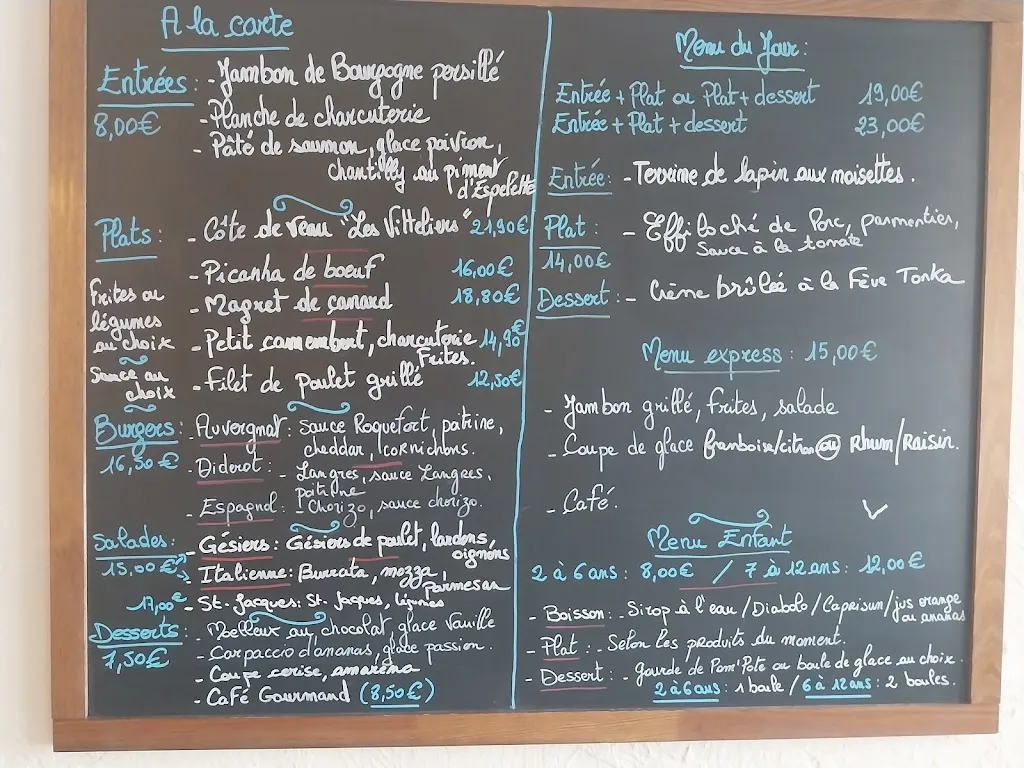 A la carte
Entrées : - Jambon de Bourgogne persillé
8,00€ - Planche de charcuterie
- Pâté de saumon, glace poivron,
chantilly au piment
d'Espelette
Plats : - Côte de veau "Les Vitteliers" 21,90€
- Picanha de boeuf 16,00€
- Magret de canard 18,80€
Frites ou
légumes
au choix
- Petit camembert, charcuterie 14,90€
Frites.
Sauce au
choix
- Filet de poulet grillé 12,50€
Burgers : Auvergnat : sauce Roquefort, poitrine,
16,50€ cheddar, cornichons.
- Diderot : - Langres, sauce Langres,
poitrine
- Espagnol : - Chorizo, sauce chorizo.
Salades : - Gésiers : Gésiers de poulet, lardons,
oignons
15,00€ Italienne : Burrata, mozza,
parmesan
17,00€ - St-Jacques : St Jacques, légumes
Desserts : - Moelleux au chocolat, glace vanille
7,50€ - Carpaccio d'ananas, glace passion.
- Coupe cerise, amarena
- Café Gourmand (8,50€)
Menu du Jour :
Entrée + Plat ou Plat + dessert 19,00€
Entrée + Plat + dessert 23,00€
Entrée : - Terrine de lapin aux noisettes.
Plat : - Effiloché de Porc, parmentier,
Sauce à la tomate
14,00€
Dessert : - Crème brûlée à la Fève Tonka
Menu express : 15,00€
- Jambon grillé, frites, salade
- Coupe de glace framboise/citron ou Rhum/Raisin.
- Café.
Menu Enfant
2 à 6 ans : 8,00€ / 7 à 12 ans : 12,00€
- Boisson : - Sirop à l'eau / Diabolo / Caprisun / jus orange
ou ananas
- Plat : - Selon les produits du moment.
- Dessert : - Gourde de Pom'Pote ou boule de glace au choix.
2 à 6 ans : 1 boule / 6 à 12 ans : 2 boules.